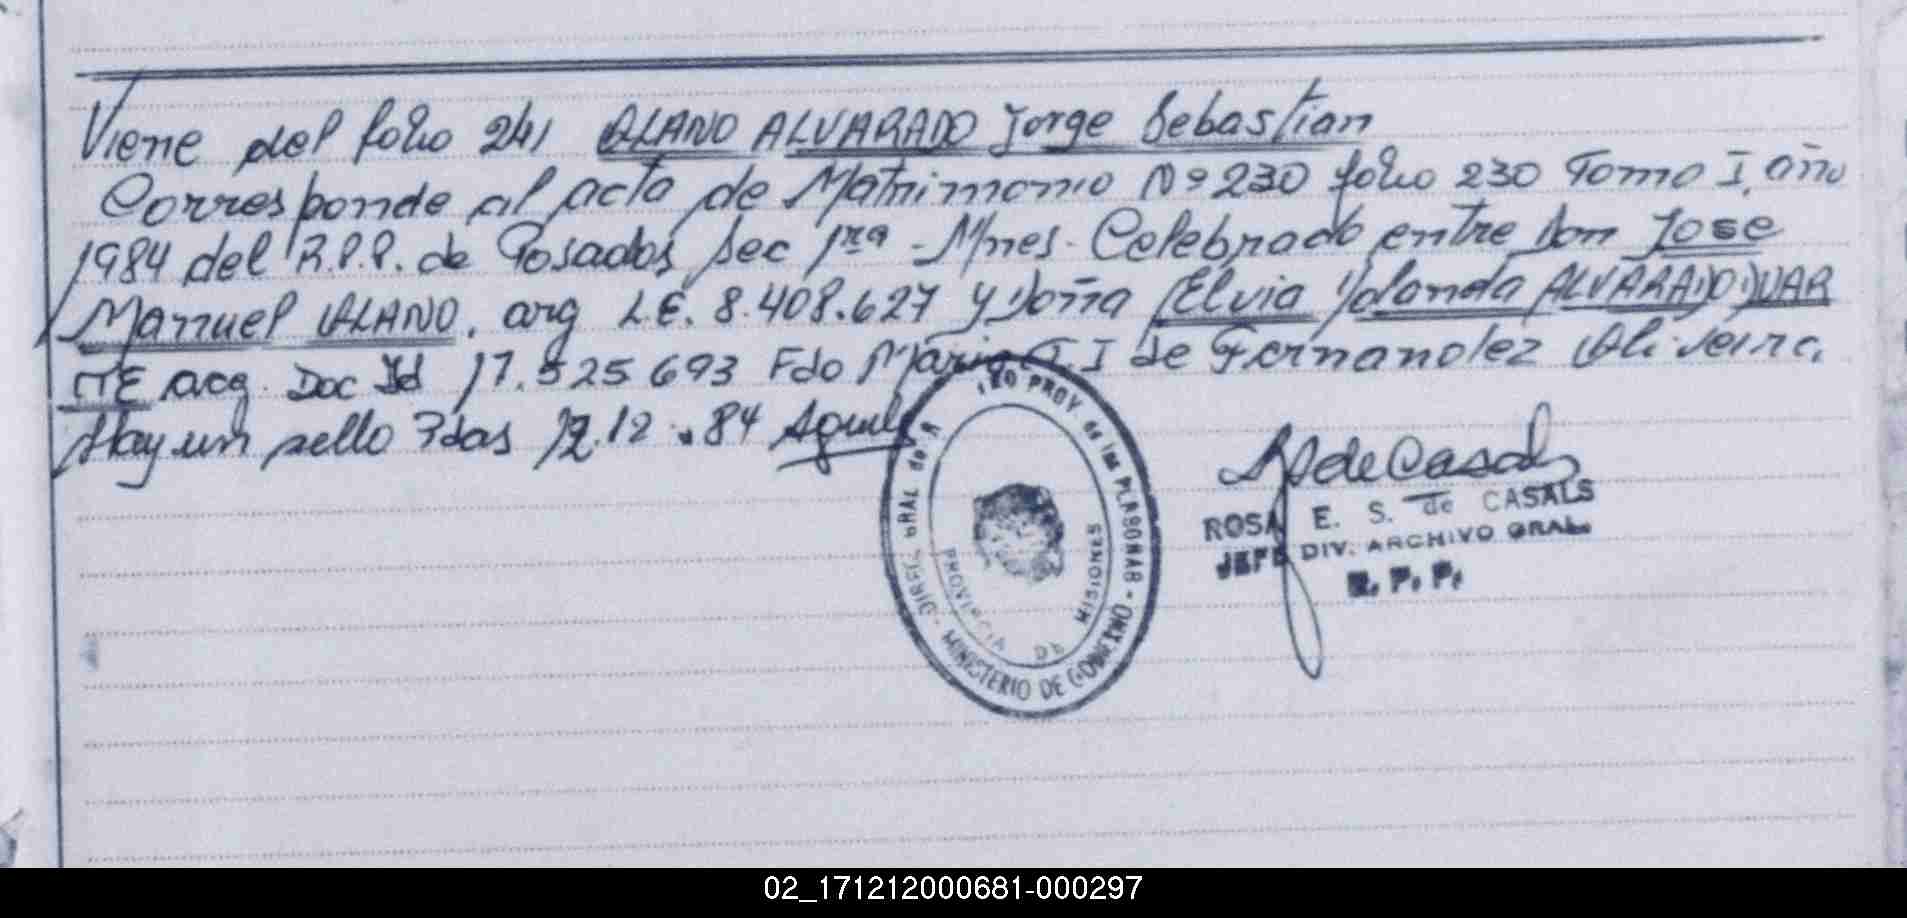 Viene del folio 241 ALANO ALVARADO Jorge Sebastian
Corresponde al acta de Matrimonio Nº 230 folio 230 Tomo I, año
1984 del R.P.P. de Posadas Sec 1ra - Mnes - Celebrado entre Don Jose
Manuel ALANO, arg L.E. 8.408.627 y Doña Elvia Yolanda ALVARADO DUAR
TE arg. Doc Id 17.525693 Fdo Maria I de Fernandez Oliveira,
Hay un sello Pdas 12.12.84
PROV de las PERSONAS - MINISTERIO DE GOBIERNO
PROVINCIA DE MISIONES
de Casals
ROSA E. S. de CASALS
JEFE DIV. ARCHIVO GRAL.
R. P. P.
02_171212000681-000297